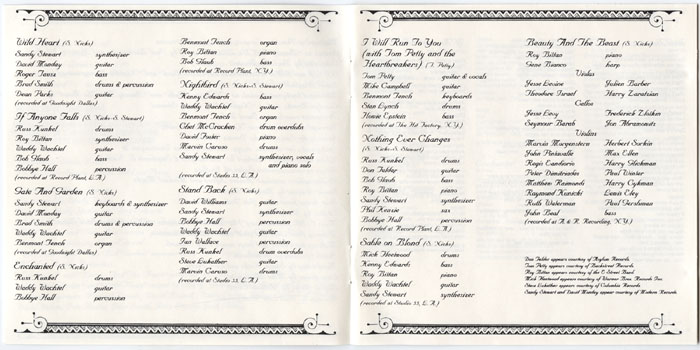 Wild Heart (S. Nicks)
Sandy Stewart synthesizer
David Munday guitar
Roger Tausz bass
Brad Smith drums & percussion
Dean Parks guitar
(recorded at Goodnight Dallas)
If Anyone Falls (S. Nicks-S. Stewart)
Russ Kunkel drums
Roy Bittan synthesizer
Waddy Wachtel guitar
Bob Glaub bass
Bobbye Hall percussion
(recorded at Record Plant, L.A.)
Gate And Garden (S. Nicks)
Sandy Stewart keyboards & synthesizer
David Munday guitar
Brad Smith drums & percussion
Waddy Wachtel guitar
Benmont Tench organ
(recorded at Goodnight Dallas)
Enchanted (S. Nicks)
Russ Kunkel drums
Roy Bittan piano
Waddy Wachtel guitar
Bobbye Hall percussion
Benmont Tench organ
Roy Bittan piano
Bob Glaub bass
(recorded at Record Plant, N.Y.)
Nightbird (S. Nicks-S. Stewart)
Kenny Edwards bass
Waddy Wachtel guitar
Benmont Tench organ
Chet McCracken drum overdubs
David Foster piano
Marvin Caruso drums
Sandy Stewart synthesizer, vocals
and piano solo
(recorded at Studio 55, L.A.)
Stand Back (S. Nicks)
David Williams guitar
Sandy Stewart synthesizer
Bobbye Hall percussion
Waddy Wachtel guitar
Ian Wallace percussion
Russ Kunkel drum overdubs
Steve Lukather guitar
Marvin Caruso drums
(recorded at Studio 55, L.A.)
I Will Run To You
(with Tom Petty and the
Heartbreakers) (T. Petty)
Tom Petty guitar & vocals
Mike Campbell guitar
Benmont Tench keyboards
Stan Lynch drums
Howie Epstein bass
(recorded at The Hit Factory, N.Y.)
Nothing Ever Changes
(S. Nicks-S. Stewart)
Russ Kunkel drums
Don Felder guitar
Bob Glaub bass
Roy Bittan piano
Sandy Stewart synthesizer
Phil Kenzie sax
Bobbye Hall percussion
(recorded at Record Plant, L.A.)
Sable on Blond (S. Nicks)
Mick Fleetwood drums
Kenny Edwards bass
Roy Bittan piano
Waddy Wachtel guitar
Sandy Stewart synthesizer
(recorded at Studio 55, L.A.)
Beauty And The Beast (S. Nicks)
Roy Bittan piano
Gene Bianco harp
Violas
Jesse Levine Julien Barber
Theodore Israel Harry Zaratzian
Cellos
Jesse Levy Frederick Zlotkin
Seymour Barab Jon Abramowitz
Violins
Marvin Morgenstern Herbert Sorkin
John Pintavalle Max Ellen
Regis Iandiorio Harry Glickman
Peter Dimitriades Paul Winter
Matthew Raimondi Harry Cykman
Raymond Kunicki Lewis Eley
Ruth Waterman Paul Gershman
John Beal bass
(recorded at A & R Recording, N.Y.)
Don Felder appears courtesy of Asylum Records
Tom Petty appears courtesy of Backstreet Records
Roy Bittan appears courtesy of the E Street Band
Mick Fleetwood appears courtesy of Warner Bros. Records Inc.
Steve Lukather appears courtesy of Columbia Records
Sandy Stewart and David Munday appear courtesy of Modern Records